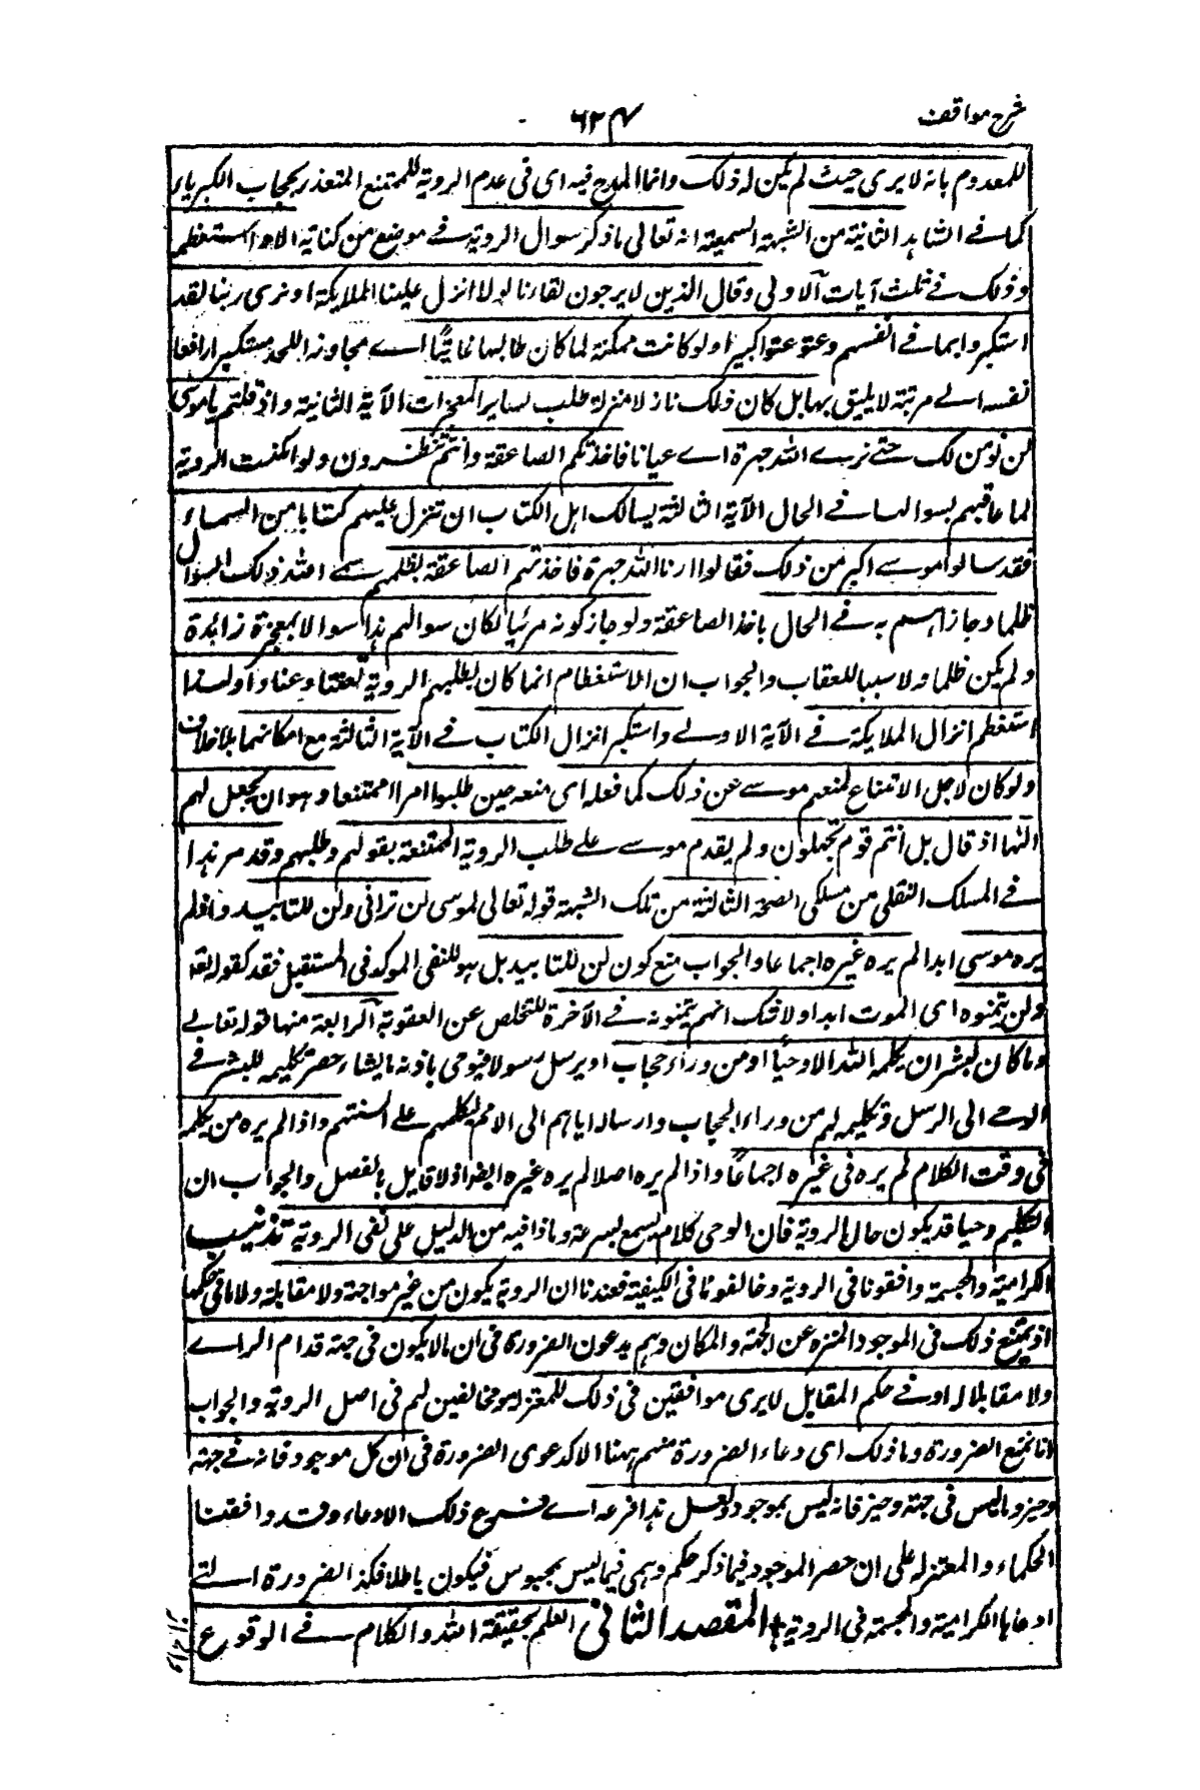 شرح مواقف
۶۲۴
للمعدوم بانه لا يرى حيث لم يكن له ذلك وانما المدح فيه اى فى عدم الروية للممتنع المتعذر بحجاب الكبرياء
كما فے الشاهد الثانية من الشبهة السمعية انه تعالى ما ذكر سوال الروية فے موضع من كتابه الا و استعظمه
وذلك فے ثلث آيات الاولى وقال الذين لا يرجون لقاءنا لولا انزل علينا الملايكة او نرى ربنا لقد
استكبروا فے انفسهم وعتو عتوا كبيرا ولو كانت ممكنة لما كان طالبها عاتيًا اے مجاوزا للحد مستكبرا رافعا
نفسه الے مرتبة لا يليق بها بل كان ذلك نازلا منزلة طلب ساير المعجزات الآية الثانية واذ قلتم يا موسى
لن نومن لك حتے نرے الله جهرة اے عيانا فاخذتكم الصاعقة وانتم تنظرون ولو امكنت الروية
لما عاقبهم بسوالها فے الحال الآية الثالثة يسالك اهل الكتاب ان تنزل عليهم كتابا من السماء
فقد سالوا موسے اكبر من ذلك فقالوا ارنا الله جهرة فاخذتهم الصاعقة بظلمهم سمے الله ذلك السوال
ظلما وجازاهم به فے الحال باخذ الصاعقة ولو جاز كونه مرئيا لكان سوالهم هذا سوالا لمعجزة زايدة
ولم يكن ظلما ولا سببا للعقاب والجواب ان الاستعظام انما كان لطلبهم الروية تعنتا وعنادا ولهذا
استعظم انزال الملايكة فے الآية الاولے واستكبر انزال الكتاب فے الآية الثالثة مع امكانهما بلا خلاف
ولو كان لاجل الامتناع لمنعهم موسے عن ذلك كما فعله اى منعه حين طلبوا امرا ممتنعا وهو ان يجعل لهم
الها اذ قال بل انتم قوم تجهلون ولم يقدم موسے علے طلب الروية الممتنعة بقولهم وطلبهم وقد مر هذا
فے المسلك النقلى من مسلكى الصحة الثالثة من تلك الشبهة قوله تعالى لموسى لن ترانى ولن للتابيد واذ لم
يره موسى ابدا لم يره غيره اجماعا والجواب منع كون لن للتابيد بل هو للنفى الموكد فى المستقبل فقط كقوله تعالى
ولن يتمنوه اى الموت ابدا ولا شك انهم يتمنونه فے الآخرة للتخلص عن العقوبة الرابعة منها قوله تعالے
وما كان لبشر ان يكلمه الله الا وحيًا او من وراء حجاب او يرسل رسولا فيوحى باذنه ما يشاء حصر تكليمه للبشر فے
الوحے الى الرسل وتكليمه لهم من وراء الحجاب وارساله اياهم الى الامم ليكلمهم علے السنتهم واذا لم يره من يكلمه
فى وقت الكلام لم يره فى غيره اجماعًا واذا لم يره اصلا لم يره غيره ايضا اذ لا قايل بالفصل والجواب ان
التكليم وحيا قد يكون حال الروية فان الوحى كلام يسمع بسرعة وما ذا فيه من الدليل على نفى الروية تذنيب
الكرامية والمجسمة وافقونا فى الروية وخالفونا فى الكيفية فعندنا ان الروية يكون من غير مواجهة ولا مقابلة ولا ما فى حكمها
اذ يمتنع ذلك فى الموجود المنزه عن الجهة والمكان وهم يدعون الضرورة فى ان ما لا يكون فى جهة قدام الراے
ولا مقابلا له او فے حكم المقابل لا يرى موافقين فى ذلك للمعتزلة ومخالفين لهم فى اصل الروية والجواب
انا نمنع الضرورة وما ذلك اى دعاء الضرورة منهم ههنا الا كدعوى الضرورة فى ان كل موجود فانه فے جهة
وحيز وما ليس فى جهة وحيز فانه ليس بموجود ولعل هذا فرعه اے فرع ذلك الادعاء وقد وافقنا
الحكماء والمعتزلة على ان حصر الموجود فيما ذكر حكم وهمى فيما ليس بمحسوس فيكون باطلا فكذا الضرورة التے
ادعاها الكرامية والمجسمة فى الروية + المقصد الثانى العلم بحقيقة الله والكلام فے الوقوع
والجواز